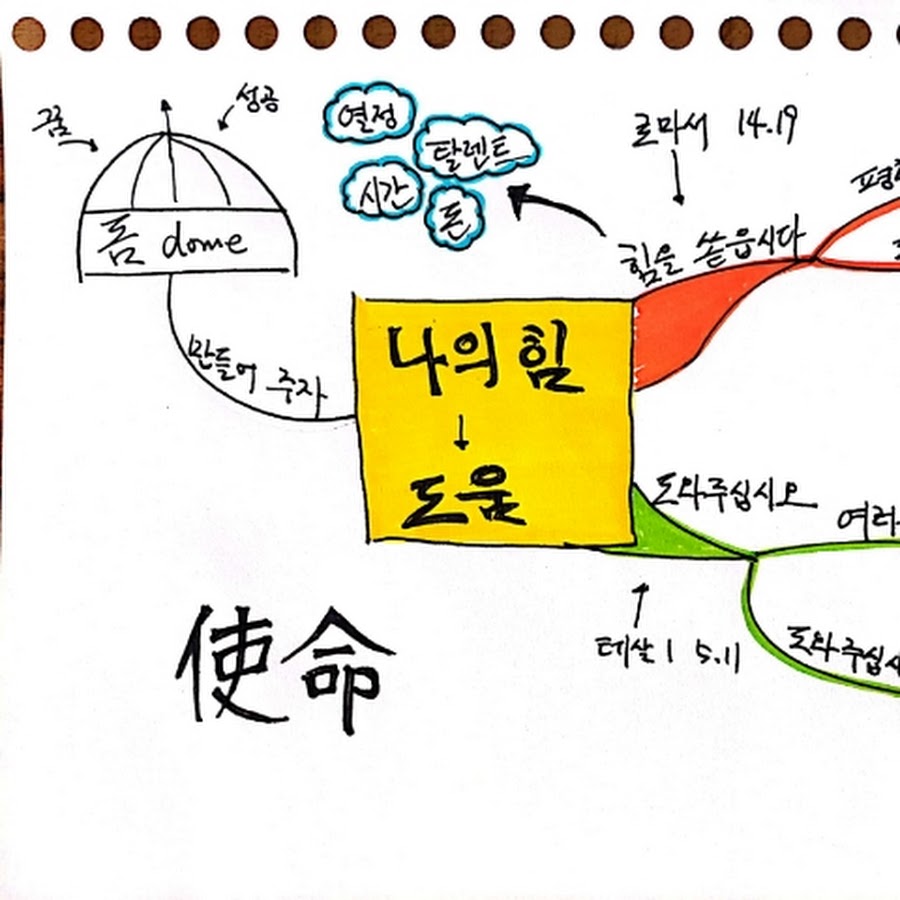 꿈
성공
돔 dome
만들어 주자
열정
탈렌트
시간
돈
로마서 14.19
힘을 쏟읍시다
나의 힘
↓
도움
도와주십시오
여러
데살 1 5.11
도와주십시
使命